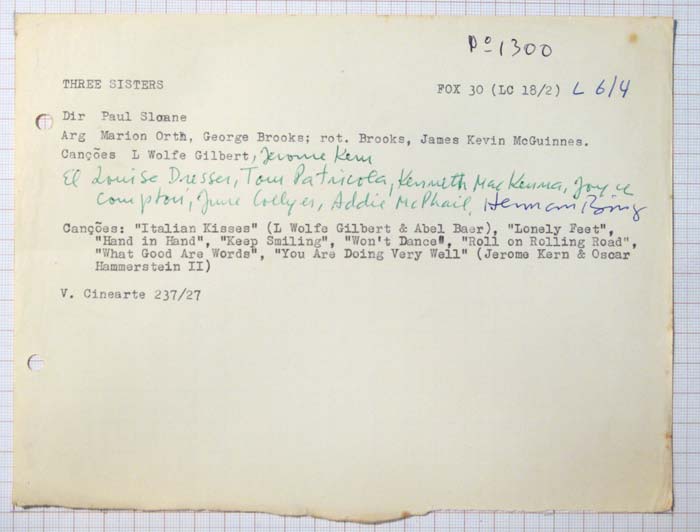 Pº 1300
THREE SISTERS FOX 30 (LC 18/2) L 6/4
Dir Paul Sloane
Arg Marion Orth, George Brooks; rot. Brooks, James Kevin McGuinnes.
Canções L Wolfe Gilbert, Jerome Kern
El Louise Dresser, Tom Patricola, Kenneth MacKenna, Joyce
Compton, June Collyer, Addie McPhail, Herman Bing
Canções: "Italian Kisses" (L Wolfe Gilbert & Abel Baer), "Lonely Feet",
"Hand in Hand", "Keep Smiling", "Won't Dance", "Roll on Rolling Road",
"What Good Are Words", "You Are Doing Very Well" (Jerome Kern & Oscar
Hammerstein II)
V. Cinearte 237/27